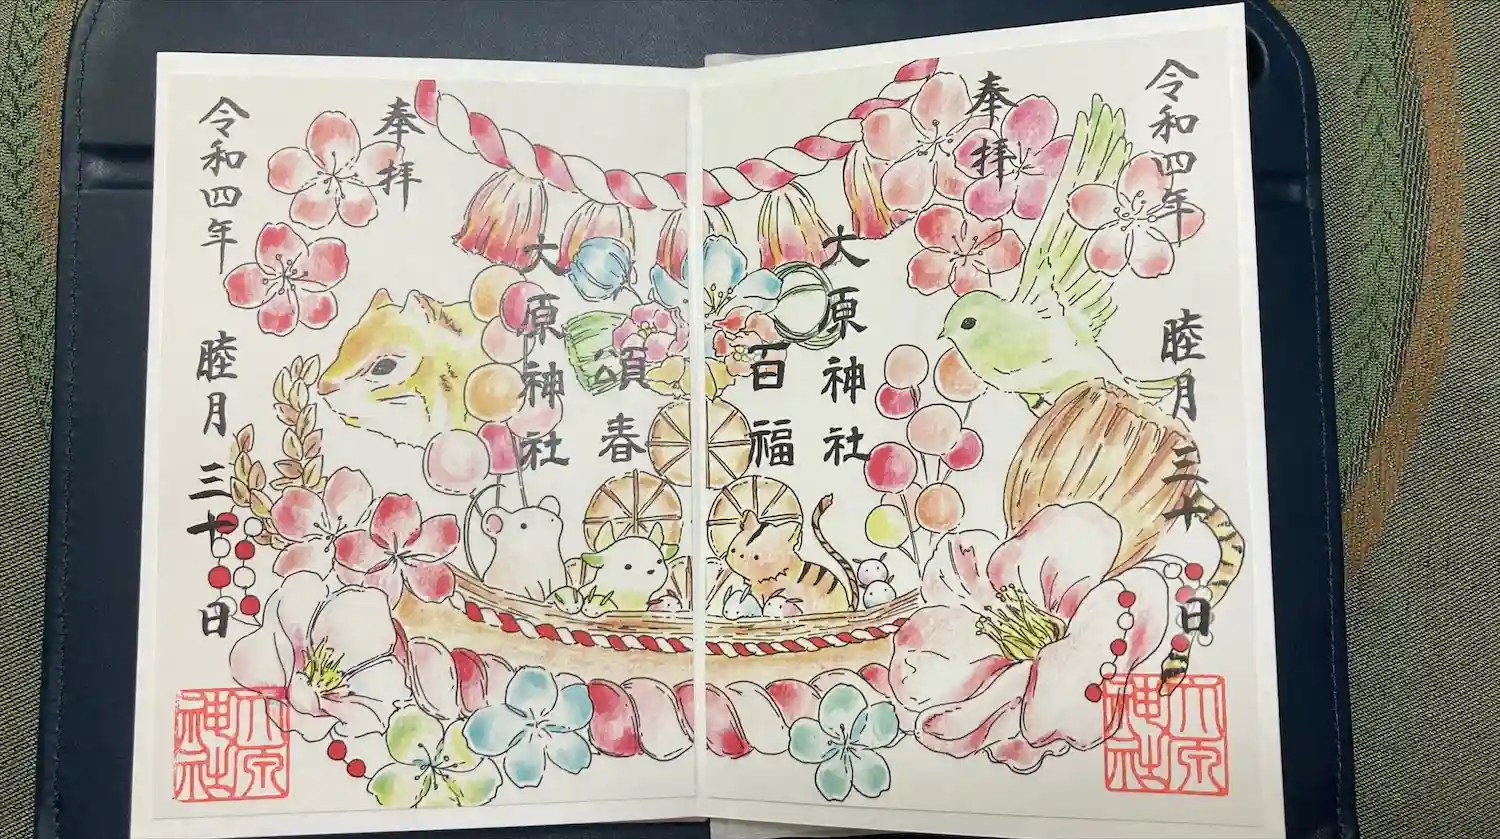 令和四年 睦月 三十日
奉拝
大原神社
百福
頌春
大原神社
奉拝
令和四年 睦月 三十日
大原神社
大原神社